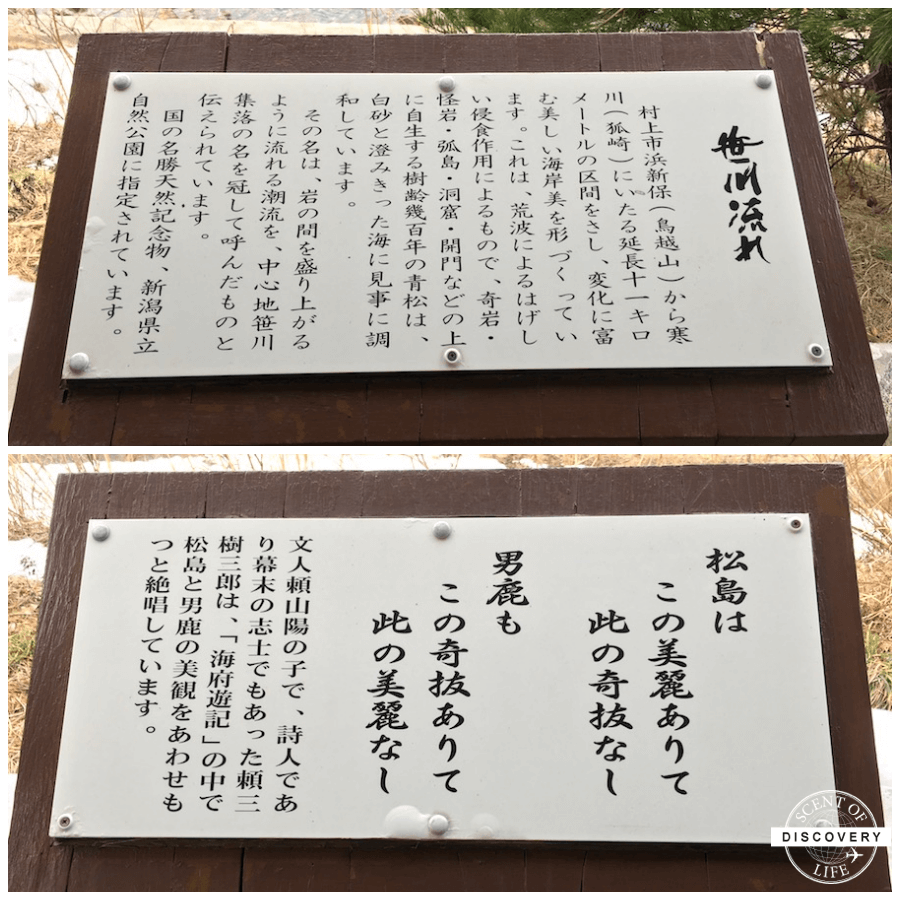 笹川流れ
村上市浜新保(鳥越山)から寒
川(狐崎)にいたる延長十一キロ
メートルの区間をさし、変化に富
む美しい海岸美を形づくってい
ます。これは、荒波によるはげし
い侵食作用によるもので、奇岩・
怪岩・孤島・洞窟・開門などの上
に自生する樹齢幾百年の青松は、
白砂と澄みきった海に見事に調
和しています。
その名は、岩の間を盛り上がる
ように流れる潮流を、中心地笹川
集落の名を冠して呼んだものと
伝えられています。
国の名勝天然記念物、新潟県立
自然公園に指定されています。
松島は
この美麗ありて
此の奇抜なし
男鹿も
この奇抜ありて
此の美麗なし
文人頼山陽の子で、詩人であ
り幕末の志士でもあった頼三
樹三郎は、「海府遊記」の中で
松島と男鹿の美観をあわせも
つと絶唱しています。
SCENT OF
DISCOVERY
LIFE